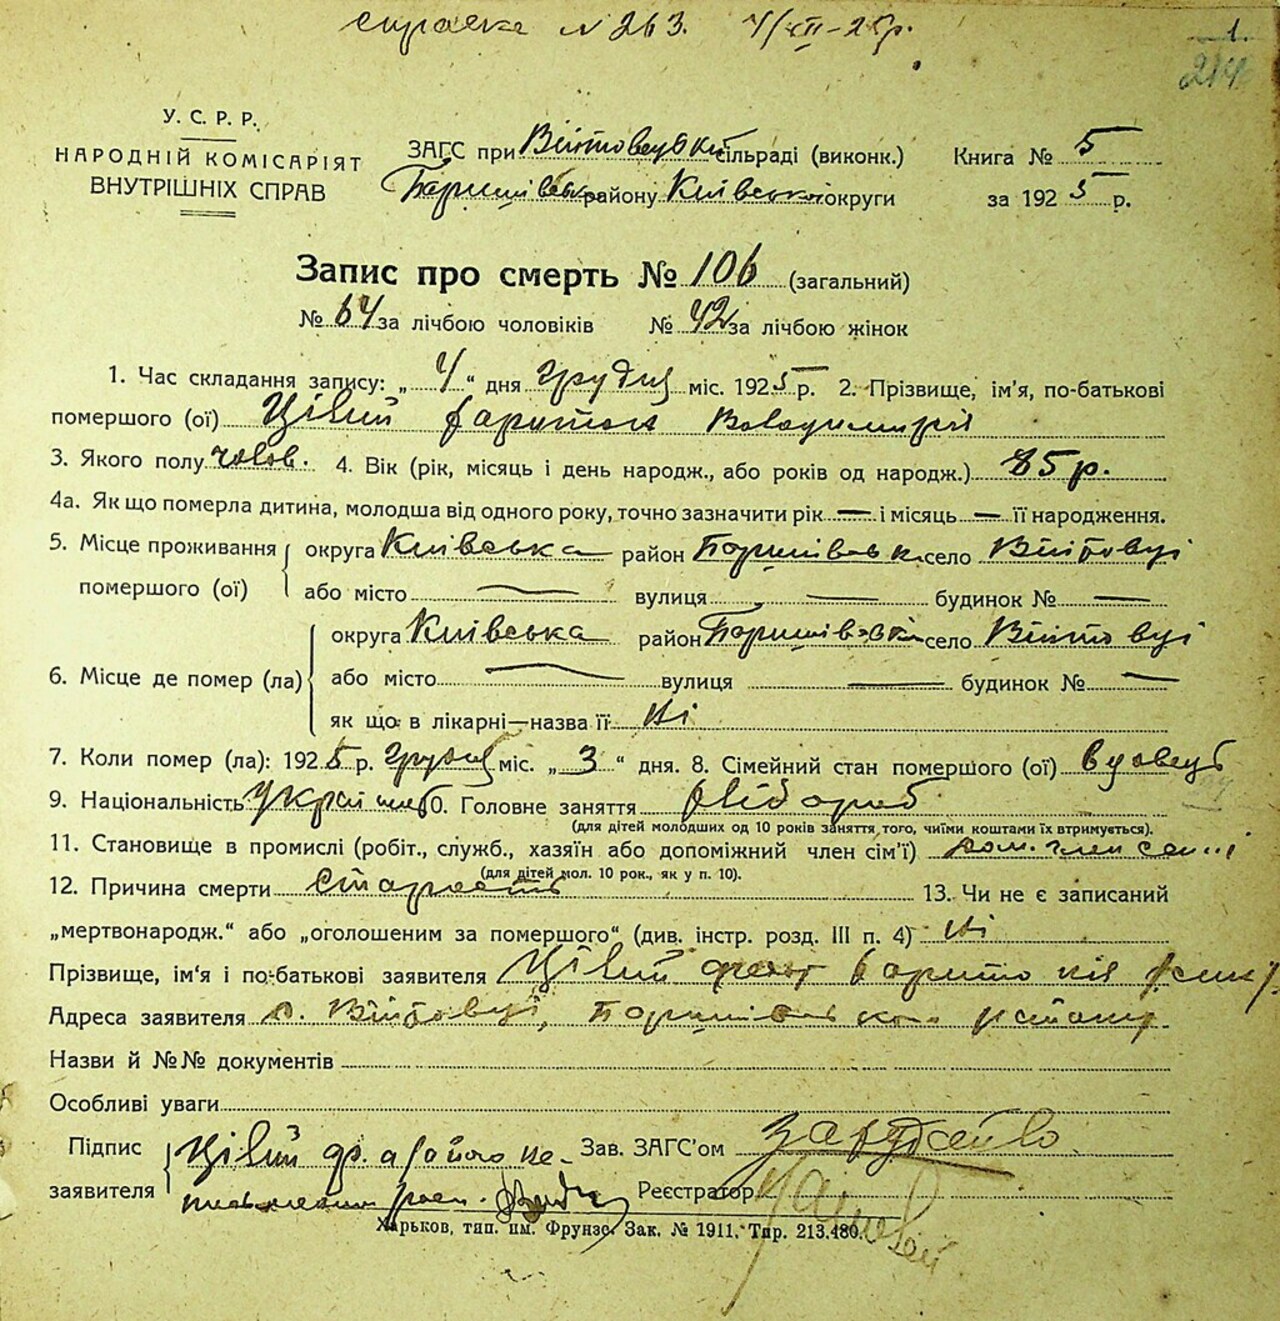 справка N 263. 4/XII-25р.
1.
214
У. С. Р. Р.
НАРОДНІЙ КОМІСАРІЯТ
ВНУТРІШНІХ СПРАВ
ЗАГС при Війтовецькій сільраді (виконк.)
Баришівськ району Київської округи
Книга № 5
за 1925 р.
Запис про смерть № 106 (загальний)
№ 64 за лічбою чоловіків № 42 за лічбою жінок
1. Час складання запису: „4“ дня Грудня міс. 1925 р. 2. Прізвище, ім'я, по-батькові
помершого (ої) Цівий Харитон Володимирів
3. Якого полу чолов. 4. Вік (рік, місяць і день народж., або років од народж.) 85 р.
4а. Як що померла дитина, молодша від одного року, точно зазначити рік — і місяць — її народження.
5. Місце проживання помершого (ої) округа Київська район Баришівськ село Війтовці
або місто — вулиця — будинок № —
6. Місце де помер (ла) округа Київська район Баришівськ село Війтовці
або місто — вулиця — будинок № —
як що в лікарні—назва її Ні
7. Коли помер (ла): 1925 р. Грудня міс. „3“ дня. 8. Сімейний стан помершого (ої) вдовець
9. Національність Україн 10. Головне заняття хлібороб
(для дітей молодших од 10 років заняття того, чиїми коштами їх втримується).
11. Становище в промислі (робіт., служб., хазяїн або допоміжний член сім'ї) член
(для дітей мол. 10 рок., як у п. 10).
12. Причина смерти старость 13. Чи не є записаний
„мертвонародж.“ або „оголошеним за помершого“ (див. інстр. розд. III п. 4) Ні
Прізвище, ім'я і по-батькові заявителя Цівий
Адреса заявителя с. Війтовці, Баришівськ
Назви й №№ документів
Особливі уваги
Підпис заявителя Цівий а за його не-
письменного розп.
Зав. ЗАГС'ом
Реєстратор
Харьков, тип. им. Фрунзе. Зак. № 1911. Тир. 213.480.